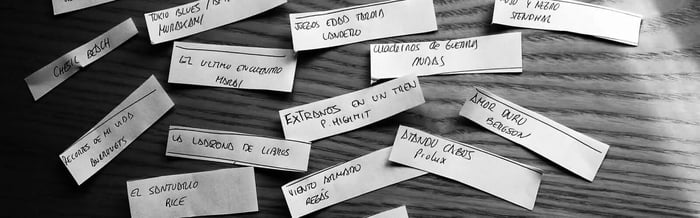 TOKIO BLUES /
MURAKAMI
JUEGOS EDAD TARDIA
LANDERO
ROJO Y NEGRO
STENDHAL
CHESIL BEACH
EL ULTIMO ENCUENTRO
MARAI
CUADERNOS DE GUERRA
DURAS
EXTRAÑOS EN UN TREN
P. HIGHMIT
AMOR DURO
BERGSON
RECORDS DE MI VIDA
LA LADRONA DE LIBROS
ATANDO CABOS
Proulx
EL SANTUARIO
RICE
VIENTO ARMADO
REGÁS